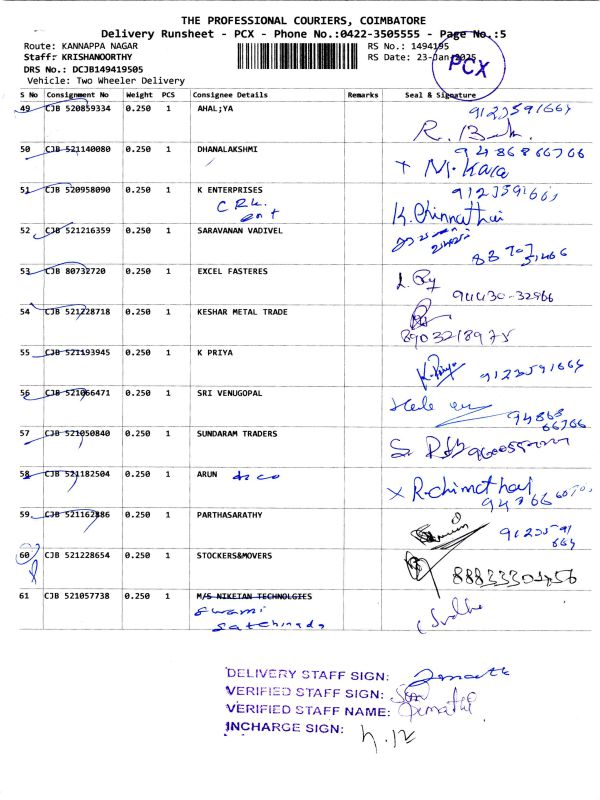 THE PROFESSIONAL COURIERS, COIMBATORE
Delivery Runsheet - PCX - Phone No.:0422-3505555 - Page No.:5
Route: KANNAPPA NAGAR RS No.: 1494195
Staff: KRISHANOORTHY RS Date: 23-Jan-2025
PCX
DRS No.: DCJB149419505
Vehicle: Two Wheeler Delivery
S No Consignment No Weight PCS Consignee Details Remarks Seal & Signature
49 CJB 520859334 0.250 1 AHAL;YA 9123591664
50 CJB 521140080 0.250 1 DHANALAKSHMI 9486866766
M. Kala
51 CJB 520958090 0.250 1 K ENTERPRISES
K. Chinnathai
52 CJB 521216359 0.250 1 SARAVANAN VADIVEL
53 CJB 80732720 0.250 1 EXCEL FASTERES
94430-32966
54 CJB 521228718 0.250 1 KESHAR METAL TRADE
8903218975
55 CJB 521193945 0.250 1 K PRIYA
K. Priya 9123591664
56 CJB 521066471 0.250 1 SRI VENUGOPAL
94868
66766
57 CJB 521050840 0.250 1 SUNDARAM TRADERS
58 CJB 521182504 0.250 1 ARUN
59 CJB 521162886 0.250 1 PARTHASARATHY
9123591
664
60 CJB 521228654 0.250 1 STOCKERS&MOVERS
61 CJB 521057738 0.250 1 M/S NIKETAN TECHNOLGIES
Swami
DELIVERY STAFF SIGN:
VERIFIED STAFF SIGN:
VERIFIED STAFF NAME:
INCHARGE SIGN: